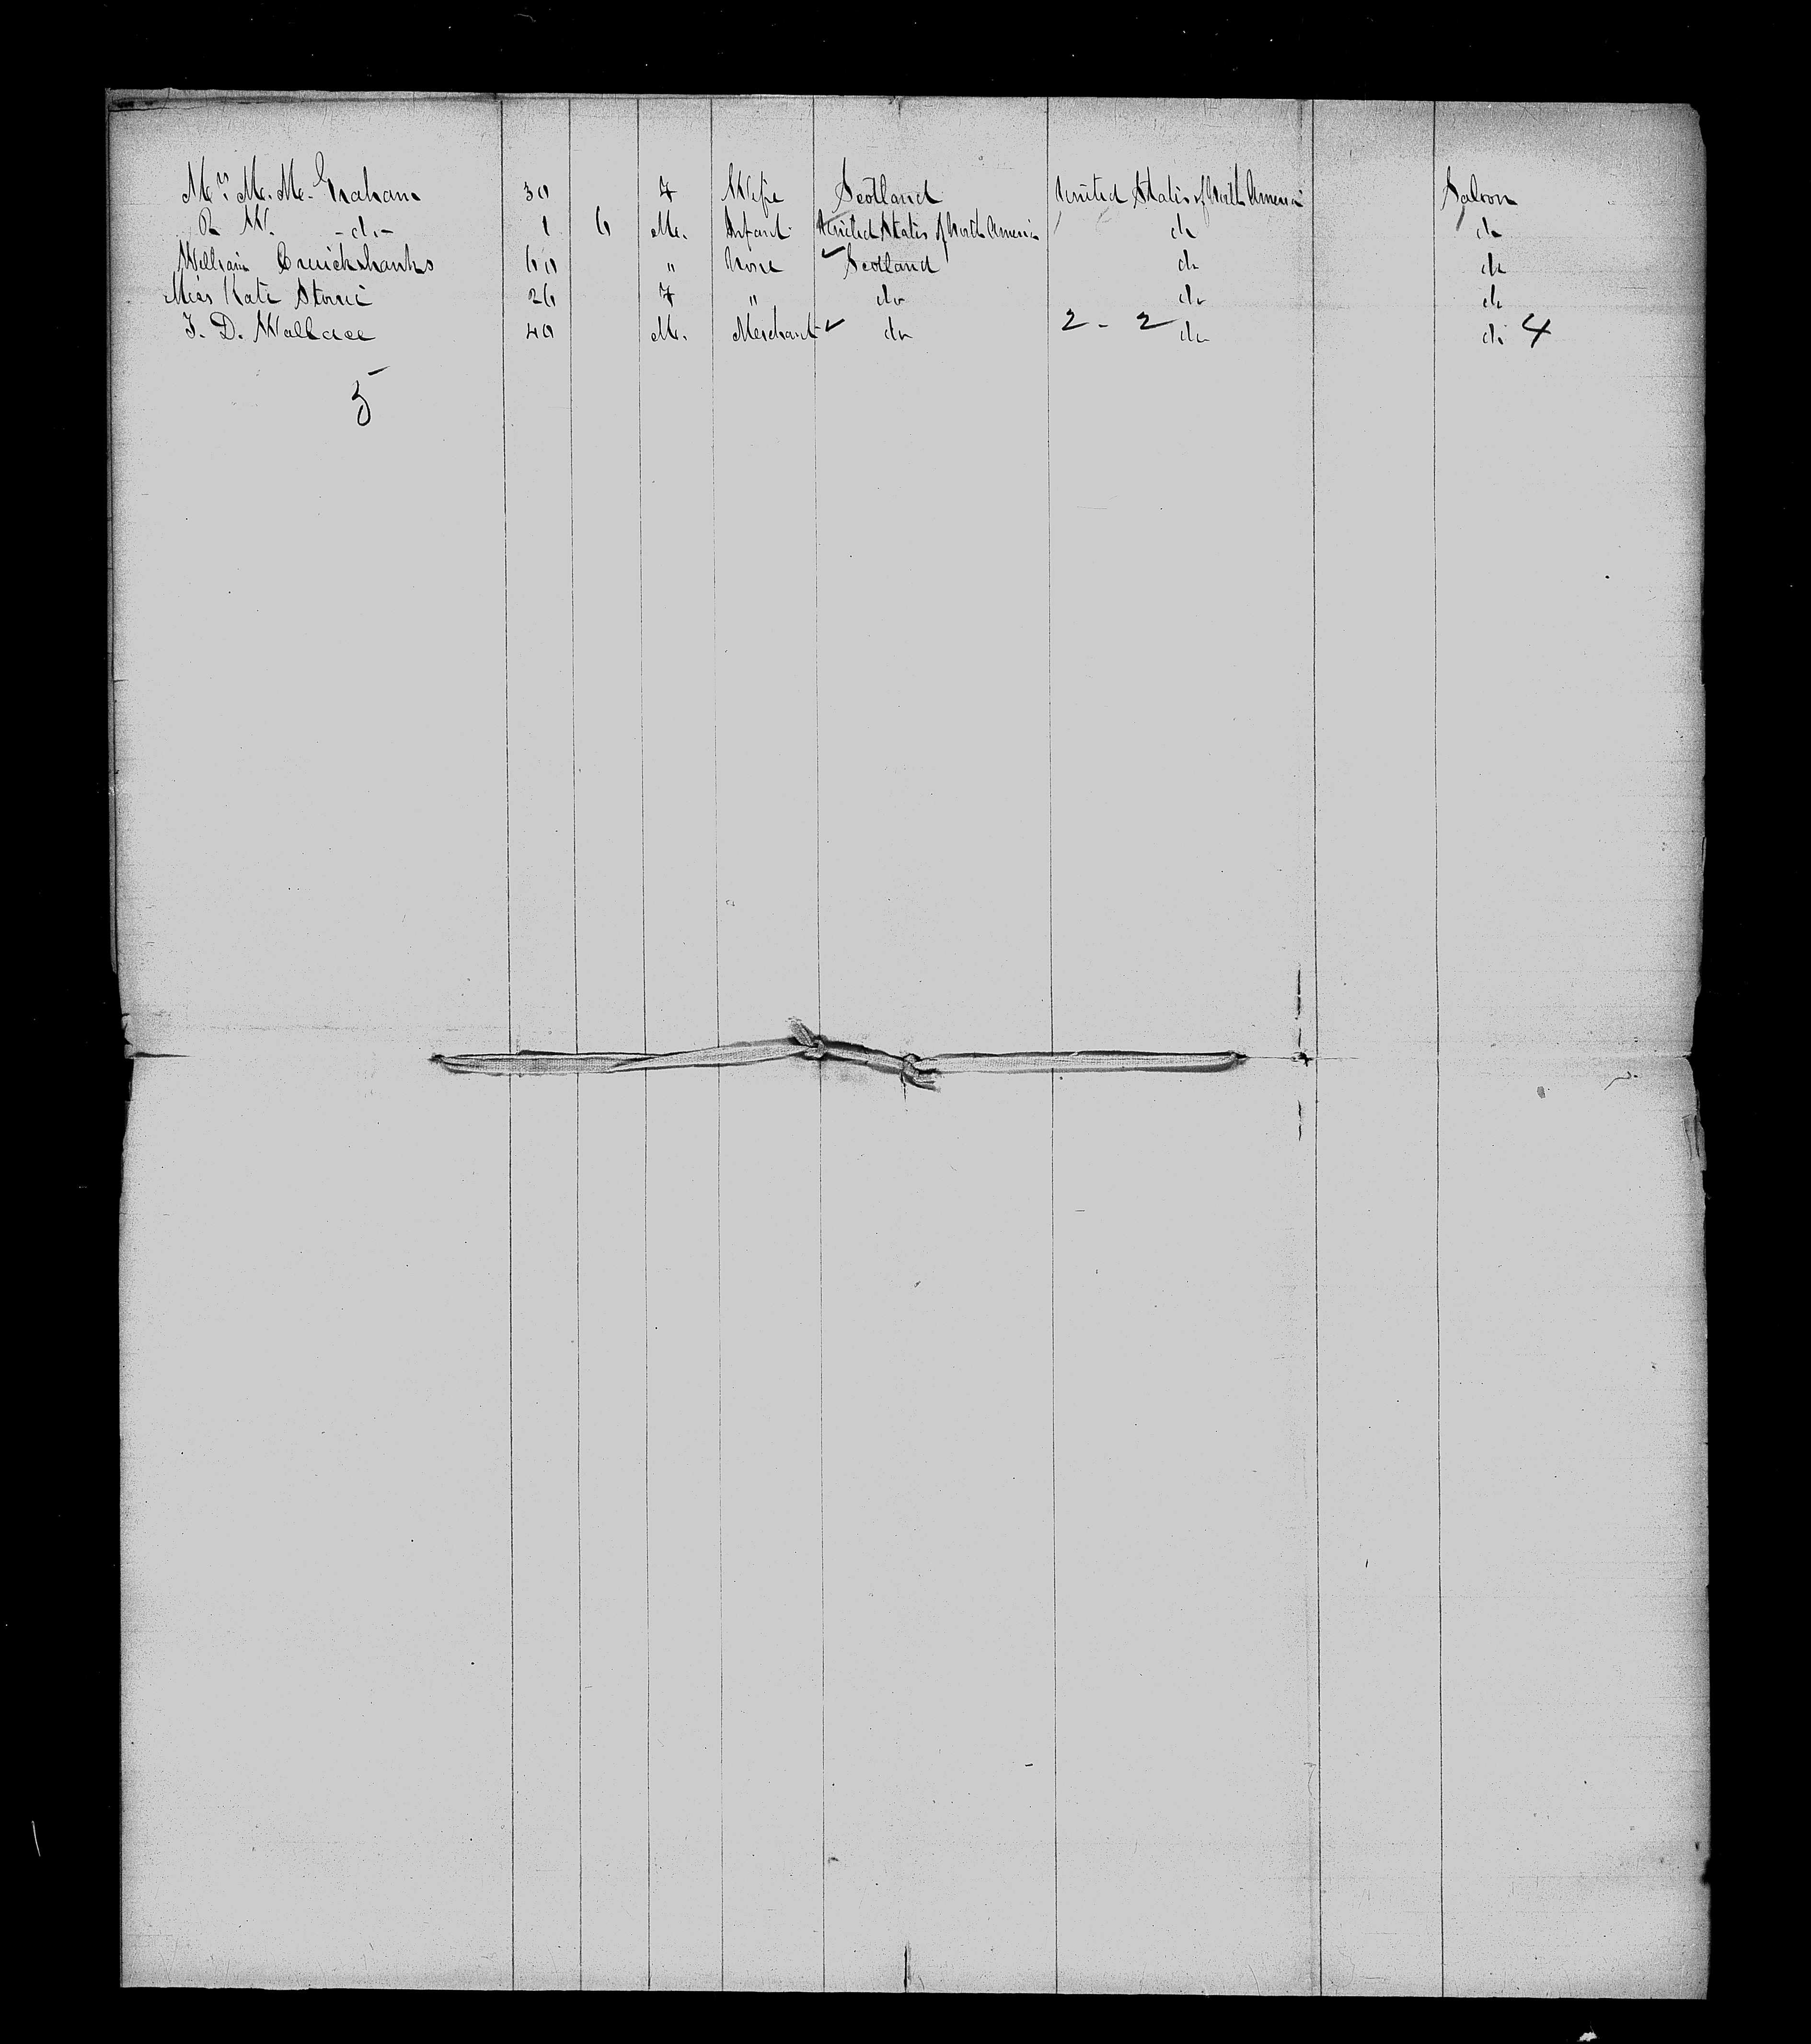 Mrs. M. M. Graham 30 F Wife Scotland United States of North America Saloon
R W. -do- 1 6 M. Infant United States of North America do do
William Cruickshanks 60 " None Scotland do do
Miss Kate Storrie 26 F " do do do
J. D. Wallace 40 M. Merchant do 2 - 2 do do 4
5